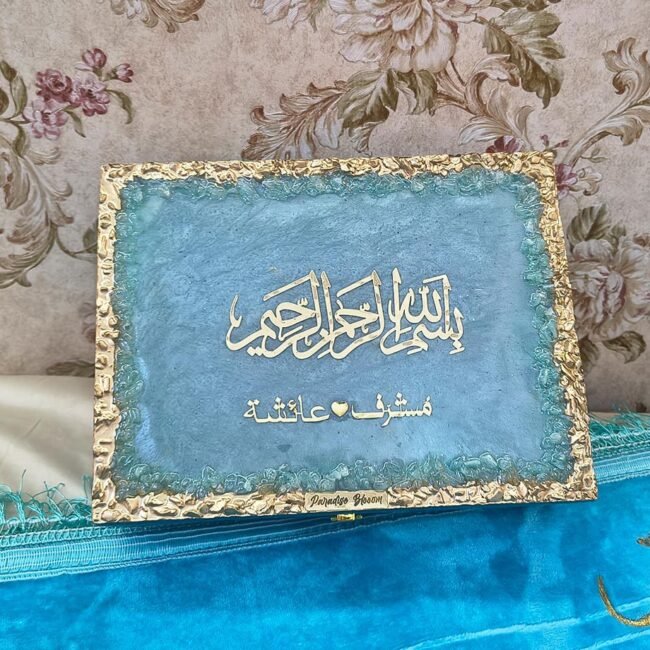 بِسْمِ اللهِ الرَّحْمٰنِ الرَّحِيْمِ
مُشرف عائشة
Paradise Bloom